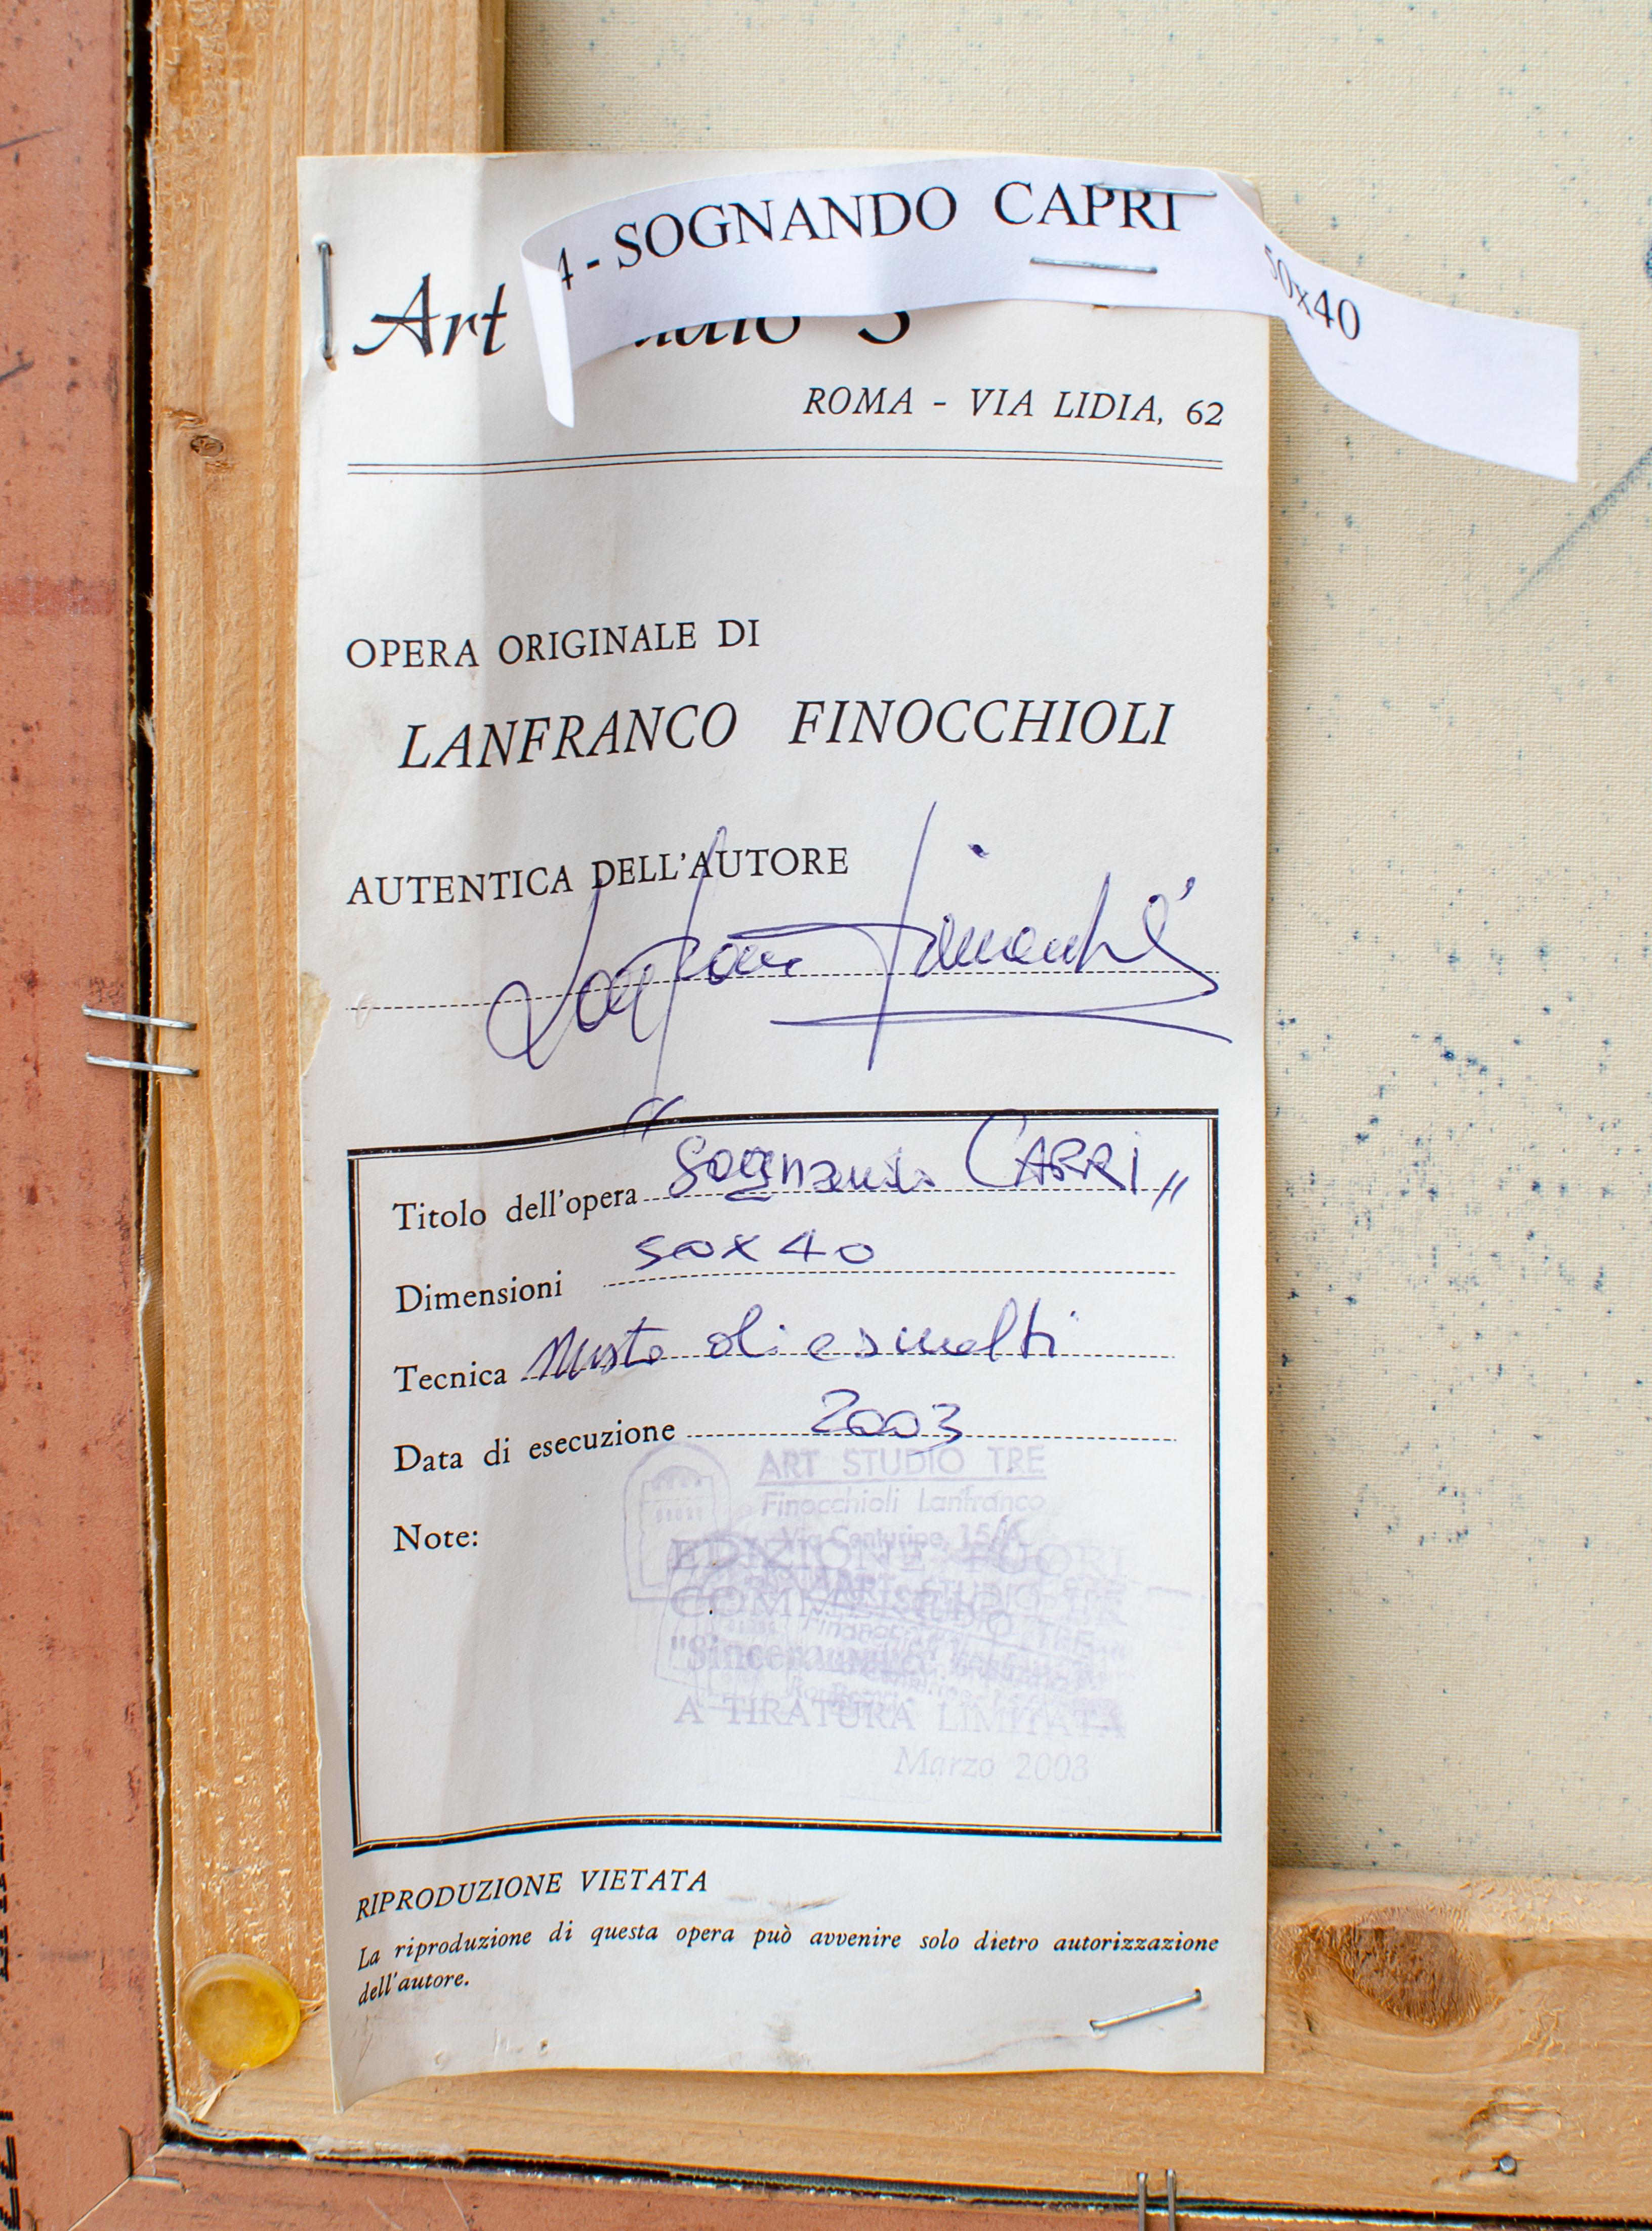 4 - SOGNANDO CAPRI 50x40
Art Studio 3
ROMA - VIA LIDIA, 62
OPERA ORIGINALE DI
LANFRANCO FINOCCHIOLI
AUTENTICA DELL'AUTORE
Titolo dell'opera "Sognando CAPRI"
Dimensioni 50x40
Tecnica Misto di e smalti
Data di esecuzione 2003
ART STUDIO TRE
Finocchioli Lanfranco
Via Centuripe, 15/A
Note:
EDIZIONE FUORI
COMMERCIO
A TIRATURA LIMITATA
Marzo 2003
RIPRODUZIONE VIETATA
La riproduzione di questa opera può avvenire solo dietro autorizzazione
dell'autore.